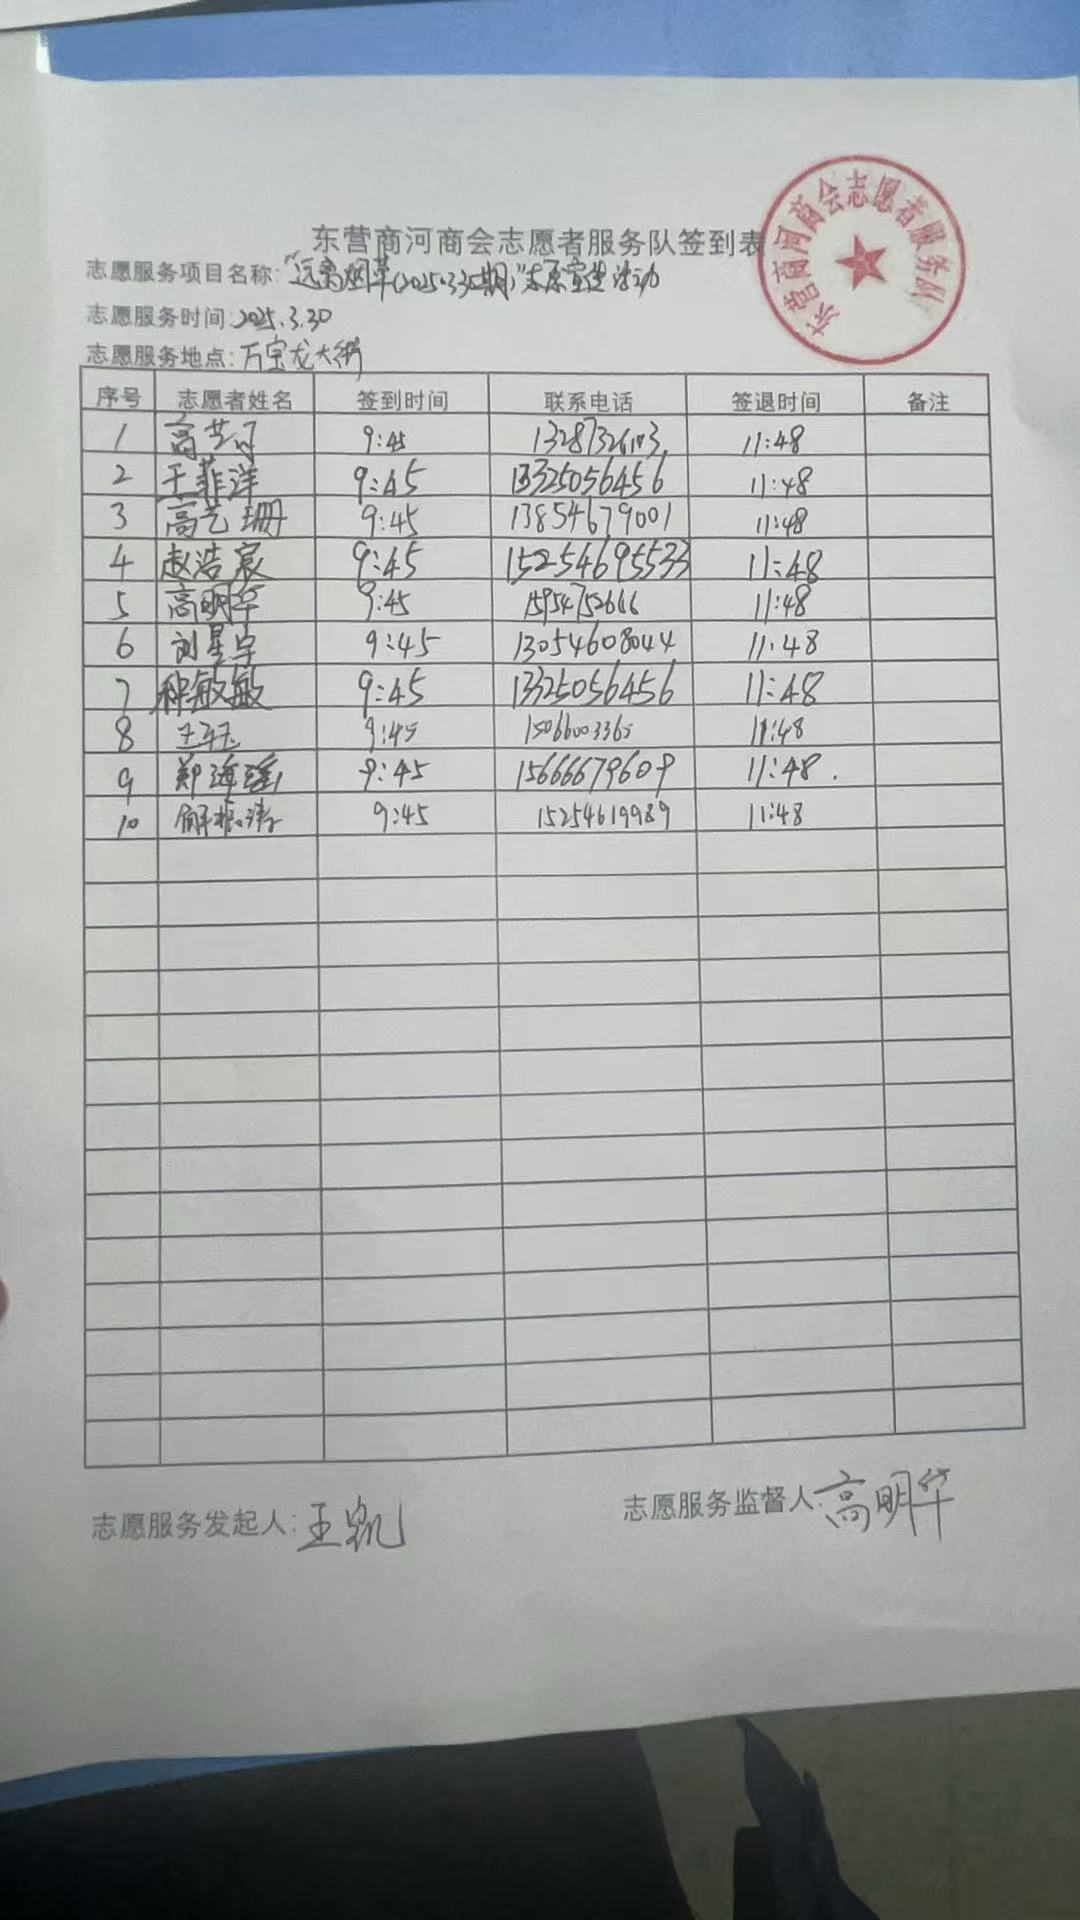 东营商河商会志愿者服务队
东营商河商会志愿者服务队签到表
志愿服务项目名称:"远离烟草(2025.3.30期)"宣 活动
志愿服务时间:2025.3.30
志愿服务地点:万宝龙大街
序号 志愿者姓名 签到时间 联系电话 签退时间 备注
1 高艺可 9:45 11:48
2 王菲洋 9:45 13325056456 11:48
3 高艺珊 9:45 13854679001 11:48
4 赵浩宸 9:45 15254695533 11:48
5 高明华 9:45 15954752666 11:48
6 刘星宇 9:45 13054608044 11:48
7 种敏敏 9:45 13325056456 11:48
8 9:45 15066003365 11:48
9 郑海瑶 9:45 15666679609 11:48.
10 解 9:45 15254619989 11:48
志愿服务发起人:王凯
志愿服务监督人:高明华